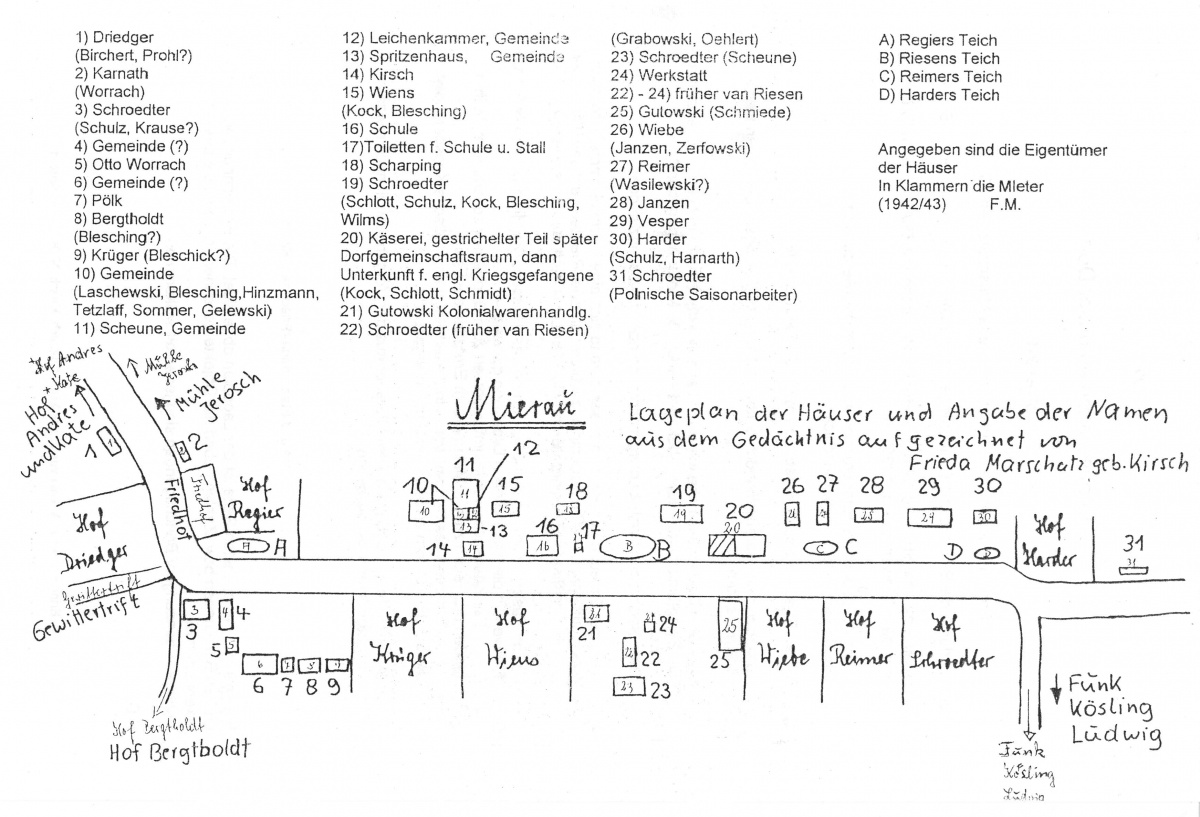 1) Driedger
(Birchert, Prohl?)
2) Karnath
(Worrach)
3) Schroedter
(Schulz, Krause?)
4) Gemeinde (?)
5) Otto Worrach
6) Gemeinde (?)
7) Pölk
8) Bergtholdt
(Blesching?)
9) Krüger (Bleschick?)
10) Gemeinde
(Laschewski, Blesching,Hinzmann,
Tetzlaff, Sommer, Gelewski)
11) Scheune, Gemeinde
12) Leichenkammer, Gemeinde
13) Spritzenhaus, Gemeinde
14) Kirsch
15) Wiens
(Kock, Blesching)
16) Schule
17)Toiletten f. Schule u. Stall
18) Scharping
19) Schroedter
(Schlott, Schulz, Kock, Blesching,
Wilms)
20) Käserei, gestrichelter Teil später
Dorfgemeinschaftsraum, dann
Unterkunft f. engl. Kriegsgefangene
(Kock, Schlott, Schmidt)
21) Gutowski Kolonialwarenhandlg.
22) Schroedter (früher van Riesen)
(Grabowski, Oehlert)
23) Schroedter (Scheune)
24) Werkstatt
22) - 24) früher van Riesen
25) Gutowski (Schmiede)
26) Wiebe
(Janzen, Zerfowski)
27) Reimer
(Wasilewski?)
28) Janzen
29) Vesper
30) Harder
(Schulz, Harnarth)
31 Schroedter
(Polnische Saisonarbeiter)
A) Regiers Teich
B) Riesens Teich
C) Reimers Teich
D) Harders Teich
Angegeben sind die Eigentümer
der Häuser
In Klammern die MIeter
(1942/43) F.M.
Mieraŭ
Lageplan der Häuser und Angabe der Namen
aus dem Gedächtnis aufgezeichnet von
Frieda Marschatz geb. Kirsch
Hof Andres
+ Kate
Mühle
Jerosch
Hof
Andres
und Kate
Mühle
Jerosch
1
2
Friedhof
Friedhof
Hof
Regier
A A
Hof
Driedger
Gewittertrift
Gewittertrift
10 10
11 11
12
13 13
14 14
15 15
16 16
17
18 18
B B
19 19
20 20
26
27
28 28
29 29
30 30
C C
D D
Hof
Harder
31 31
3 3
4 4
5 5
6 6
7 7
8 8
9 9
Hof
Krüger
Hof
Wiens
21 21
22 22
23 23
24
25 25
Hof
Wiebe
Hof
Reimer
Hof
Schroedter
Hof Bergtholdt
Hof Bergtboldt
Fŭnk
Kösling
Lŭdwig
Fŭnk
Kösling
Lŭdwig